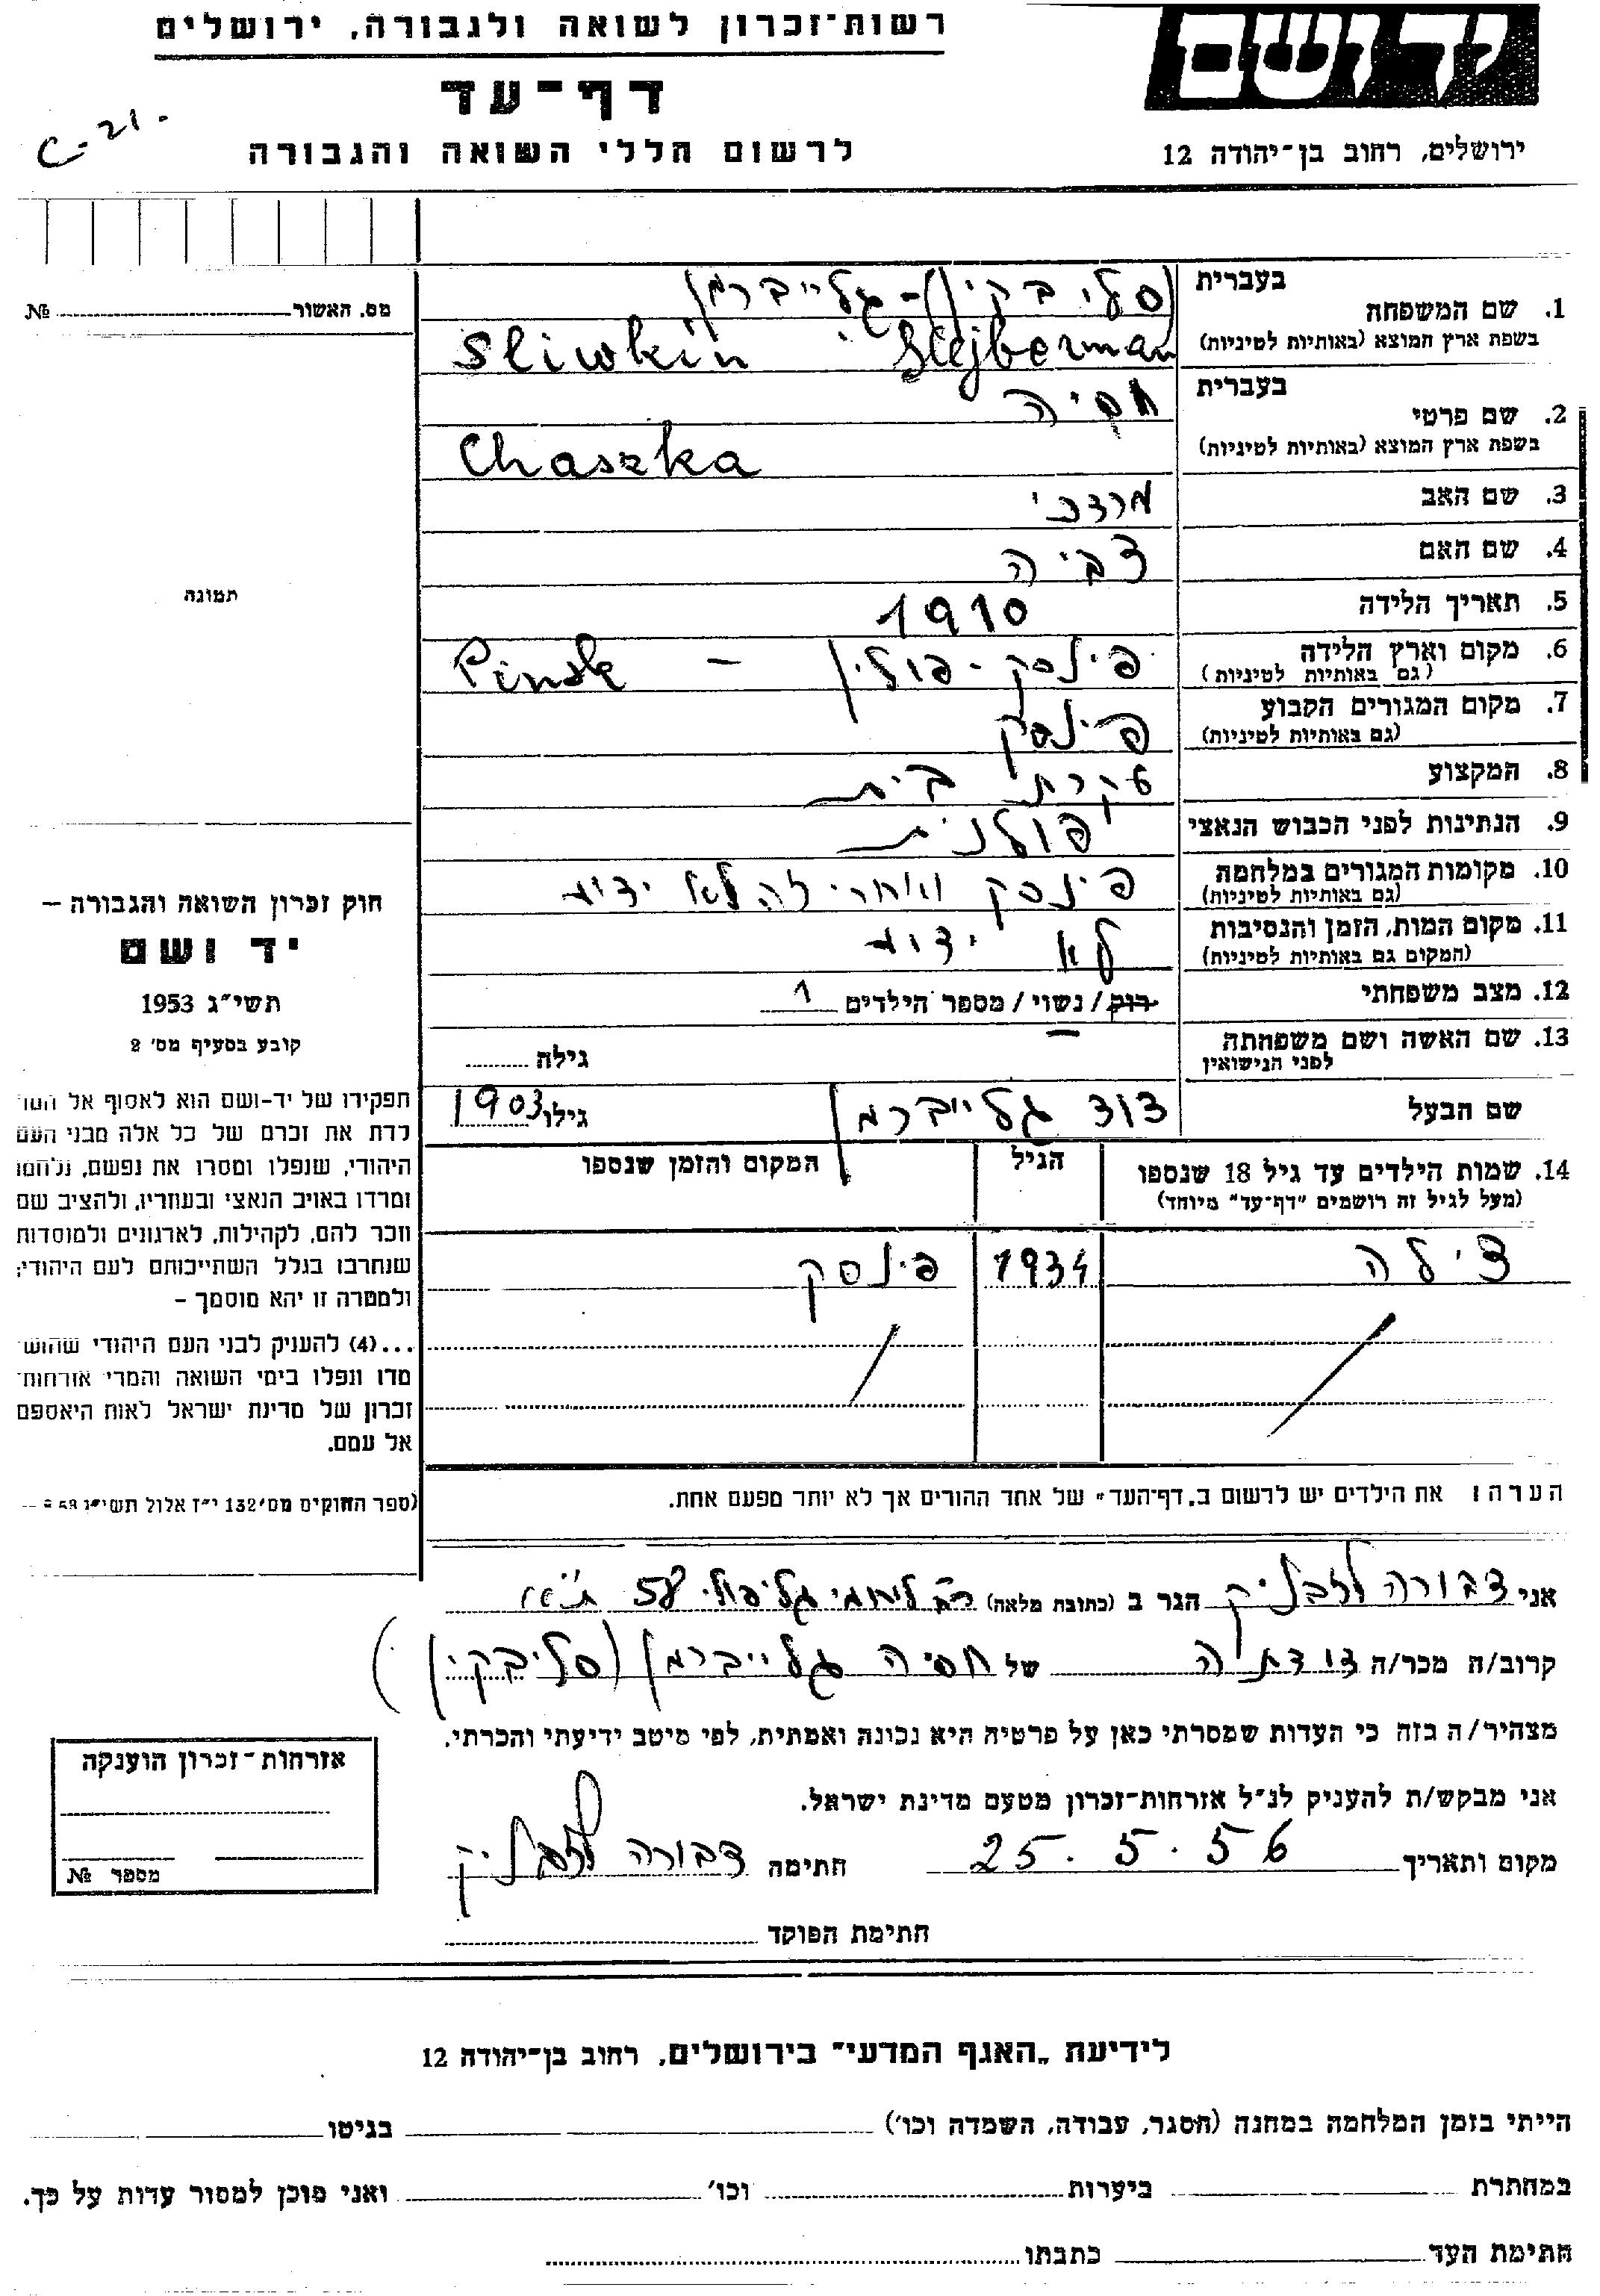 רשות-זכרון לשואה ולגבורה, ירושלים
יד ושם
דף-עד
C-21.
לרשום חללי השואה והגבורה
ירושלים, רחוב בן-יהודה 12
מס. האשור № 
1. שם המשפחה בעברית (סליבקין) - גלייברמן
בשפת ארץ המוצא (באותיות לטיניות) Sliwkin Glejberman
2. שם פרטי בעברית חסיה
בשפת ארץ המוצא (באותיות לטיניות) Chaszka
3. שם האב מרדכי
4. שם האם צביה
5. תאריך הלידה 1910
6. מקום וארץ הלידה (גם באותיות לטיניות) פינסק - פולין - Pinsk
7. מקום המגורים הקבוע (גם באותיות לטיניות) פינסק
8. המקצוע עקרת בית
9. הנתינות לפני הכבוש הנאצי פולנית
10. מקומות המגורים במלחמה (גם באותיות לטיניות) פינסק ואחרי זה לא ידוע
11. מקום המות, הזמן והנסיבות (המקום גם באותיות לטיניות) לא ידוע
12. מצב משפחתי רוק/נשוי/מספר הילדים 1
13. שם האשה ושם משפחתה לפני הנישואין — גילה
שם הבעל דוד גלייברמן גילו 1903
14. שמות הילדים עד גיל 18 שנספו הגיל המקום והזמן שנספו
(מעל לגיל זה רושמים "דף-עד" מיוחד)
צילה 1934 פינסק
הערה: את הילדים יש לרשום ב"דף-העד" של אחד ההורים אך לא יותר מפעם אחת.
תמונה
חוק זכרון השואה והגבורה –
יד ושם
תשי"ג 1953
קובע בסעיף מס' 2
תפקידו של יד-ושם הוא לאסוף אל המו
לדת את זכרם של כל אלה מבני העם
היהודי, שנפלו ומסרו את נפשם, נלחמו
ומרדו באויב הנאצי ובעוזריו, ולהציב שם
וזכר להם, לקהילות, לארגונים ולמוסדות
שנחרבו בגלל השתייכותם לעם היהודי;
ולמטרה זו יהא מוסמך –
...(4) להעניק לבני העם היהודי שהוש
מדו ונפלו בימי השואה והמרי אזרחות
זכרון של מדינת ישראל לאות היאספם
אל עמם.
(ספר החוקים מס' 132 י"ז אלול תשי"ג
אני דבורה הגר ב (כתובת מלאה) רח' גליפולי 58 ת"א
קרוב/ה מכר/ה דודתה של חסיה גלייברמן (סליבקין)
מצהיר/ה בזה כי העדות שמסרתי כאן על פרטיה היא נכונה ואמתית, לפי מיטב ידיעתי והכרתי.
אני מבקש/ת להעניק לנ"ל אזרחות-זכרון מטעם מדינת ישראל.
מקום ותאריך 25.5.56 חתימה דבורה
חתימת הפוקד
אזרחות-זכרון הוענקה
מספר №
לידיעת "האגף המדעי" בירושלים, רחוב בן-יהודה 12
הייתי בזמן המלחמה במחנה (הסגר, עבודה, השמדה וכו') בגיטו
במחתרת ביערות וכו' ואני מוכן למסור עדות על כך.
חתימת העד כתבתו